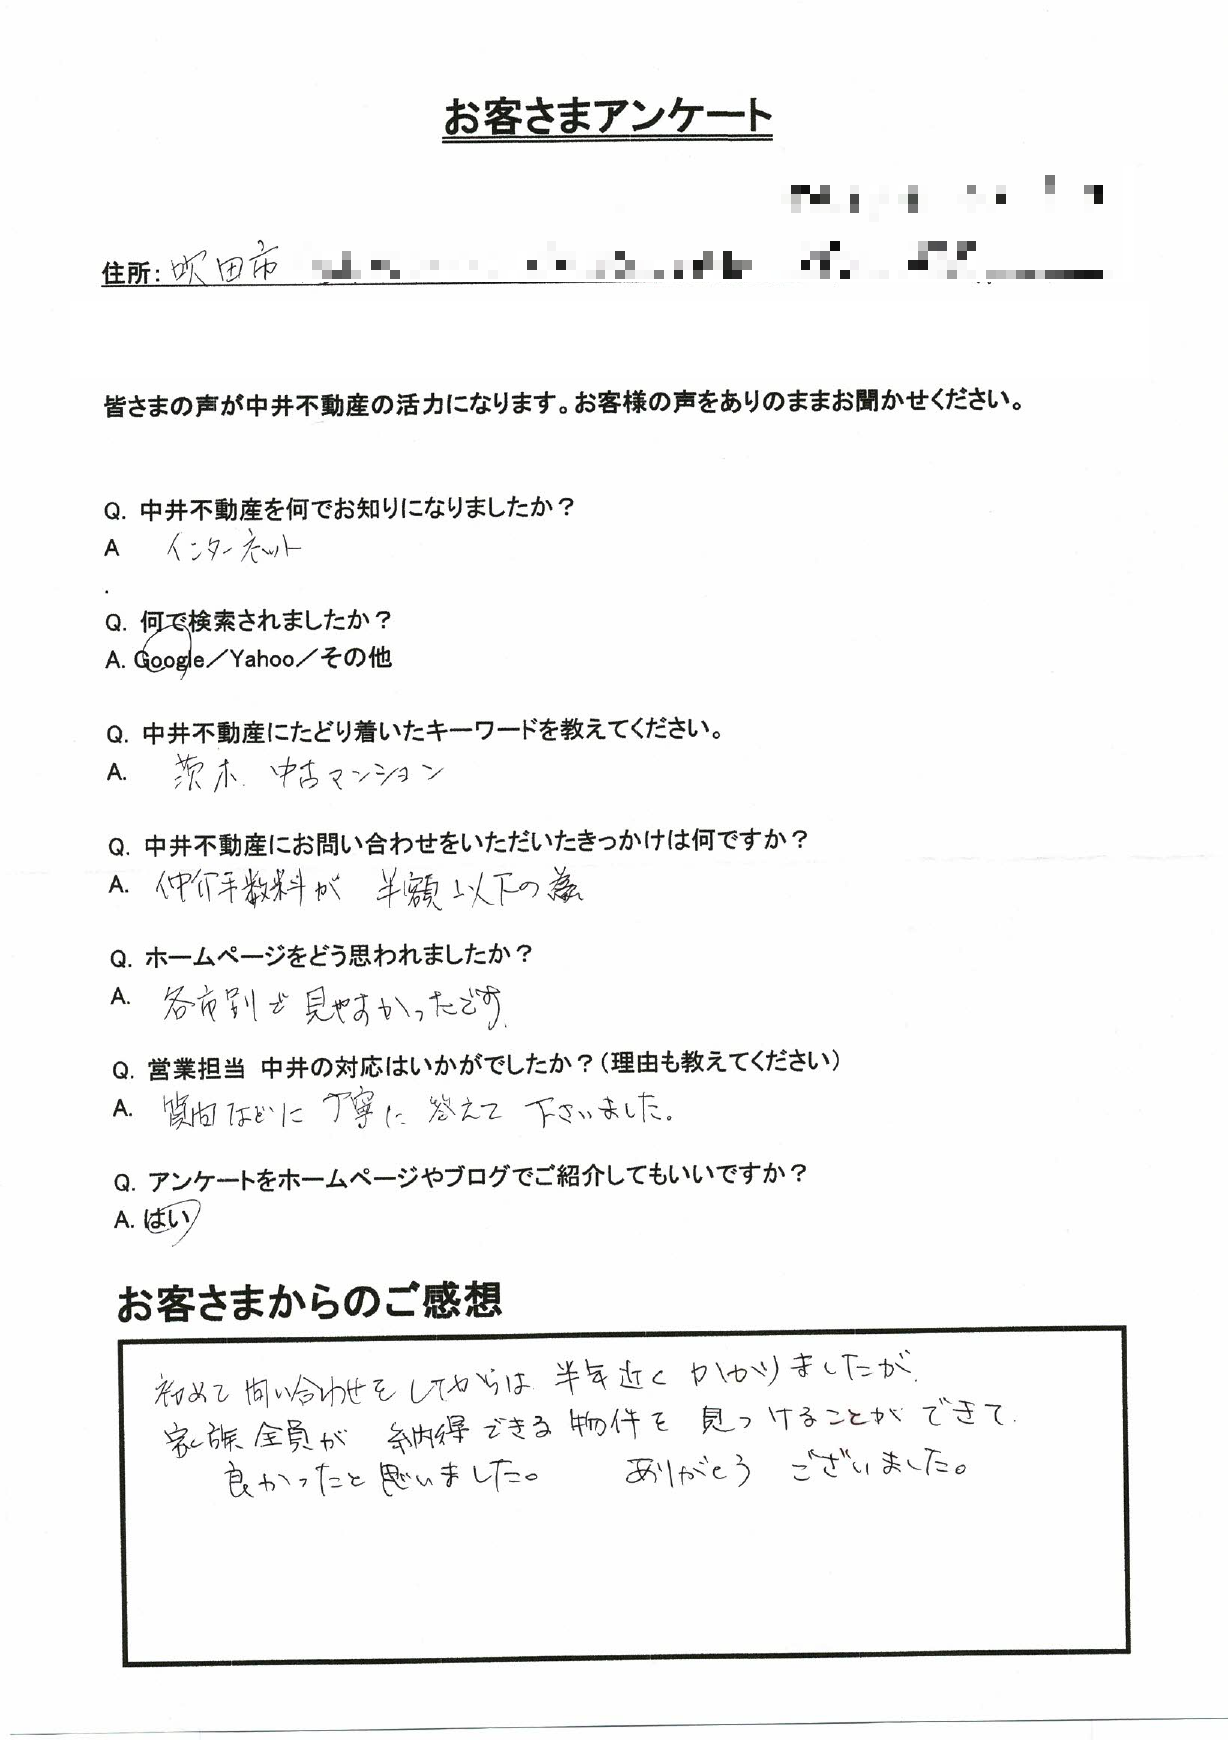 お客さまアンケート
住所: 吹田市
皆さまの声が中井不動産の活力になります。お客様の声をありのままお聞かせください。
Q. 中井不動産を何でお知りになりましたか？
A インターネット
.
Q. 何で検索されましたか？
A. Google／Yahoo／その他
Q. 中井不動産にたどり着いたキーワードを教えてください。
A. 茨木 中古マンション
Q. 中井不動産にお問い合わせをいただいたきっかけは何ですか？
A. 仲介手数料が 半額以下の為
Q. ホームページをどう思われましたか？
A. 各市別で見やすかったです。
Q. 営業担当 中井の対応はいかがでしたか？（理由も教えてください）
A. 質問などに 丁寧に 答えて 下さいました。
Q. アンケートをホームページやブログでご紹介してもいいですか？
A. はい
お客さまからのご感想
初めて問い合わせをしてからは 半年近く かかりましたが、
家族全員が 納得できる物件を 見つけることが できて、
良かったと思いました。 ありがとう ございました。